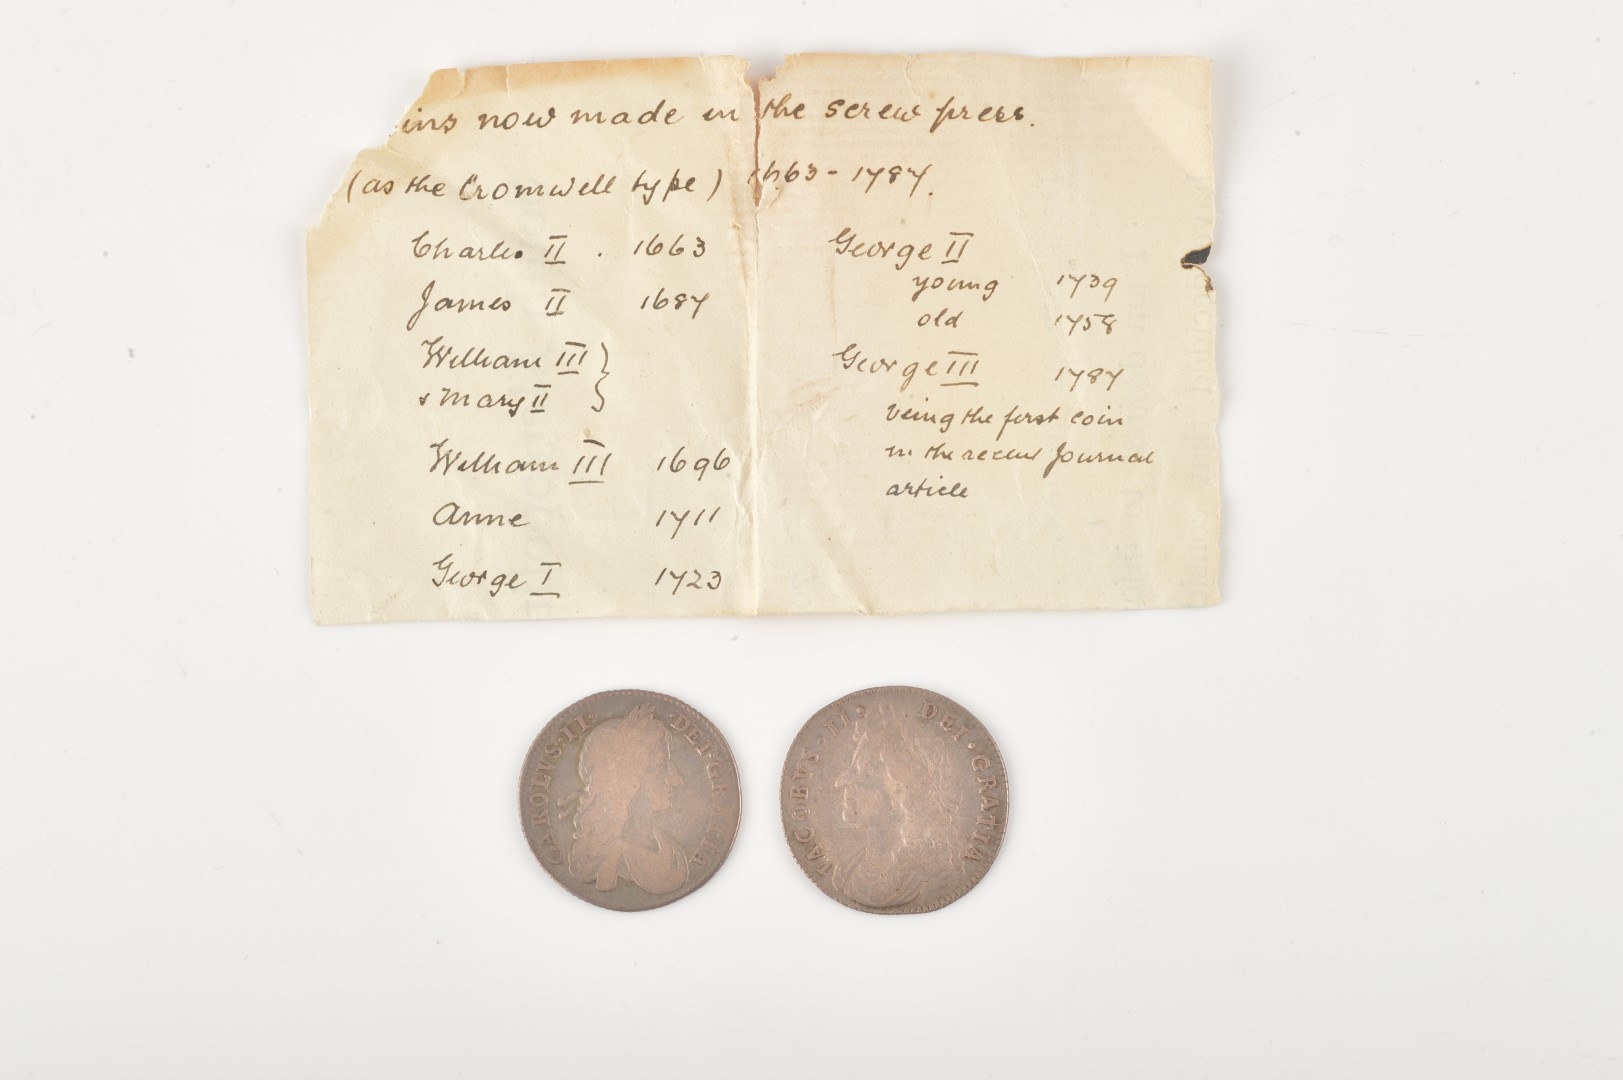 ins now made in the screw press.
(as the Cromwell type) 1663 - 1787.
Charles II . 1663
James II 1687
William III }
& Mary II
William III 1696
Anne 1711
George I 1723
George II
young 1739
old 1758
George III 1787
being the first coin
in the recent Journal
article
CAROLVS·II· DEI·GR TIA
IACOBVS·II· DEI·GRATIA